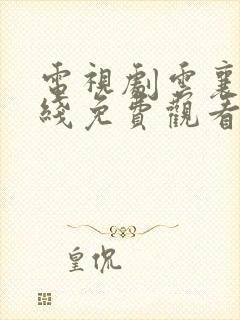 電視劇雲襄
綫免費觀看
皇侃